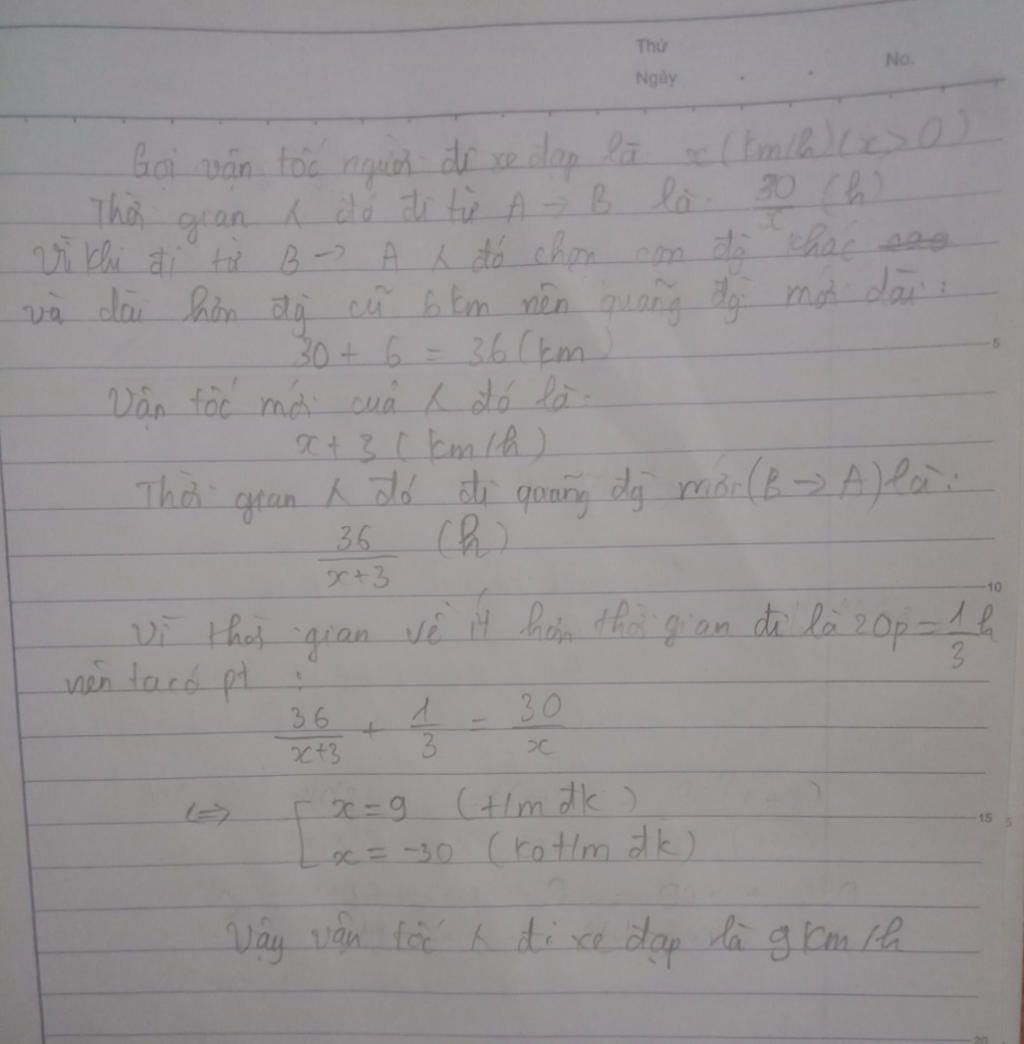 Thứ
Ngày
No.
Gọi vận tốc người đi xe đạp là x (km/h) (x > 0)
Thời gian λ đó đi từ A → B là 30/x (h)
Vì khi đi từ B → A λ đó chọn con đg khác
và dài hơn đg cũ 6 km nên quãng đg mới dài :
30 + 6 = 36 (km
5
Vận tốc mới của λ đó là :
x + 3 ( km/h)
Thời gian λ đó đi quãng dg mới (B → A) là :
36/(x+3) (h)
10
Vì thời gian về ít hơn thời gian đi là 20p = 1/3 h
nên ta có pt :
36/(x+3) + 1/3 = 30/x
⇔ [ x = 9 (t/m đk )
15
x = -30 (ko t/m đk)
Vậy vận tốc λ đi xe đạp là 9 km/h
20